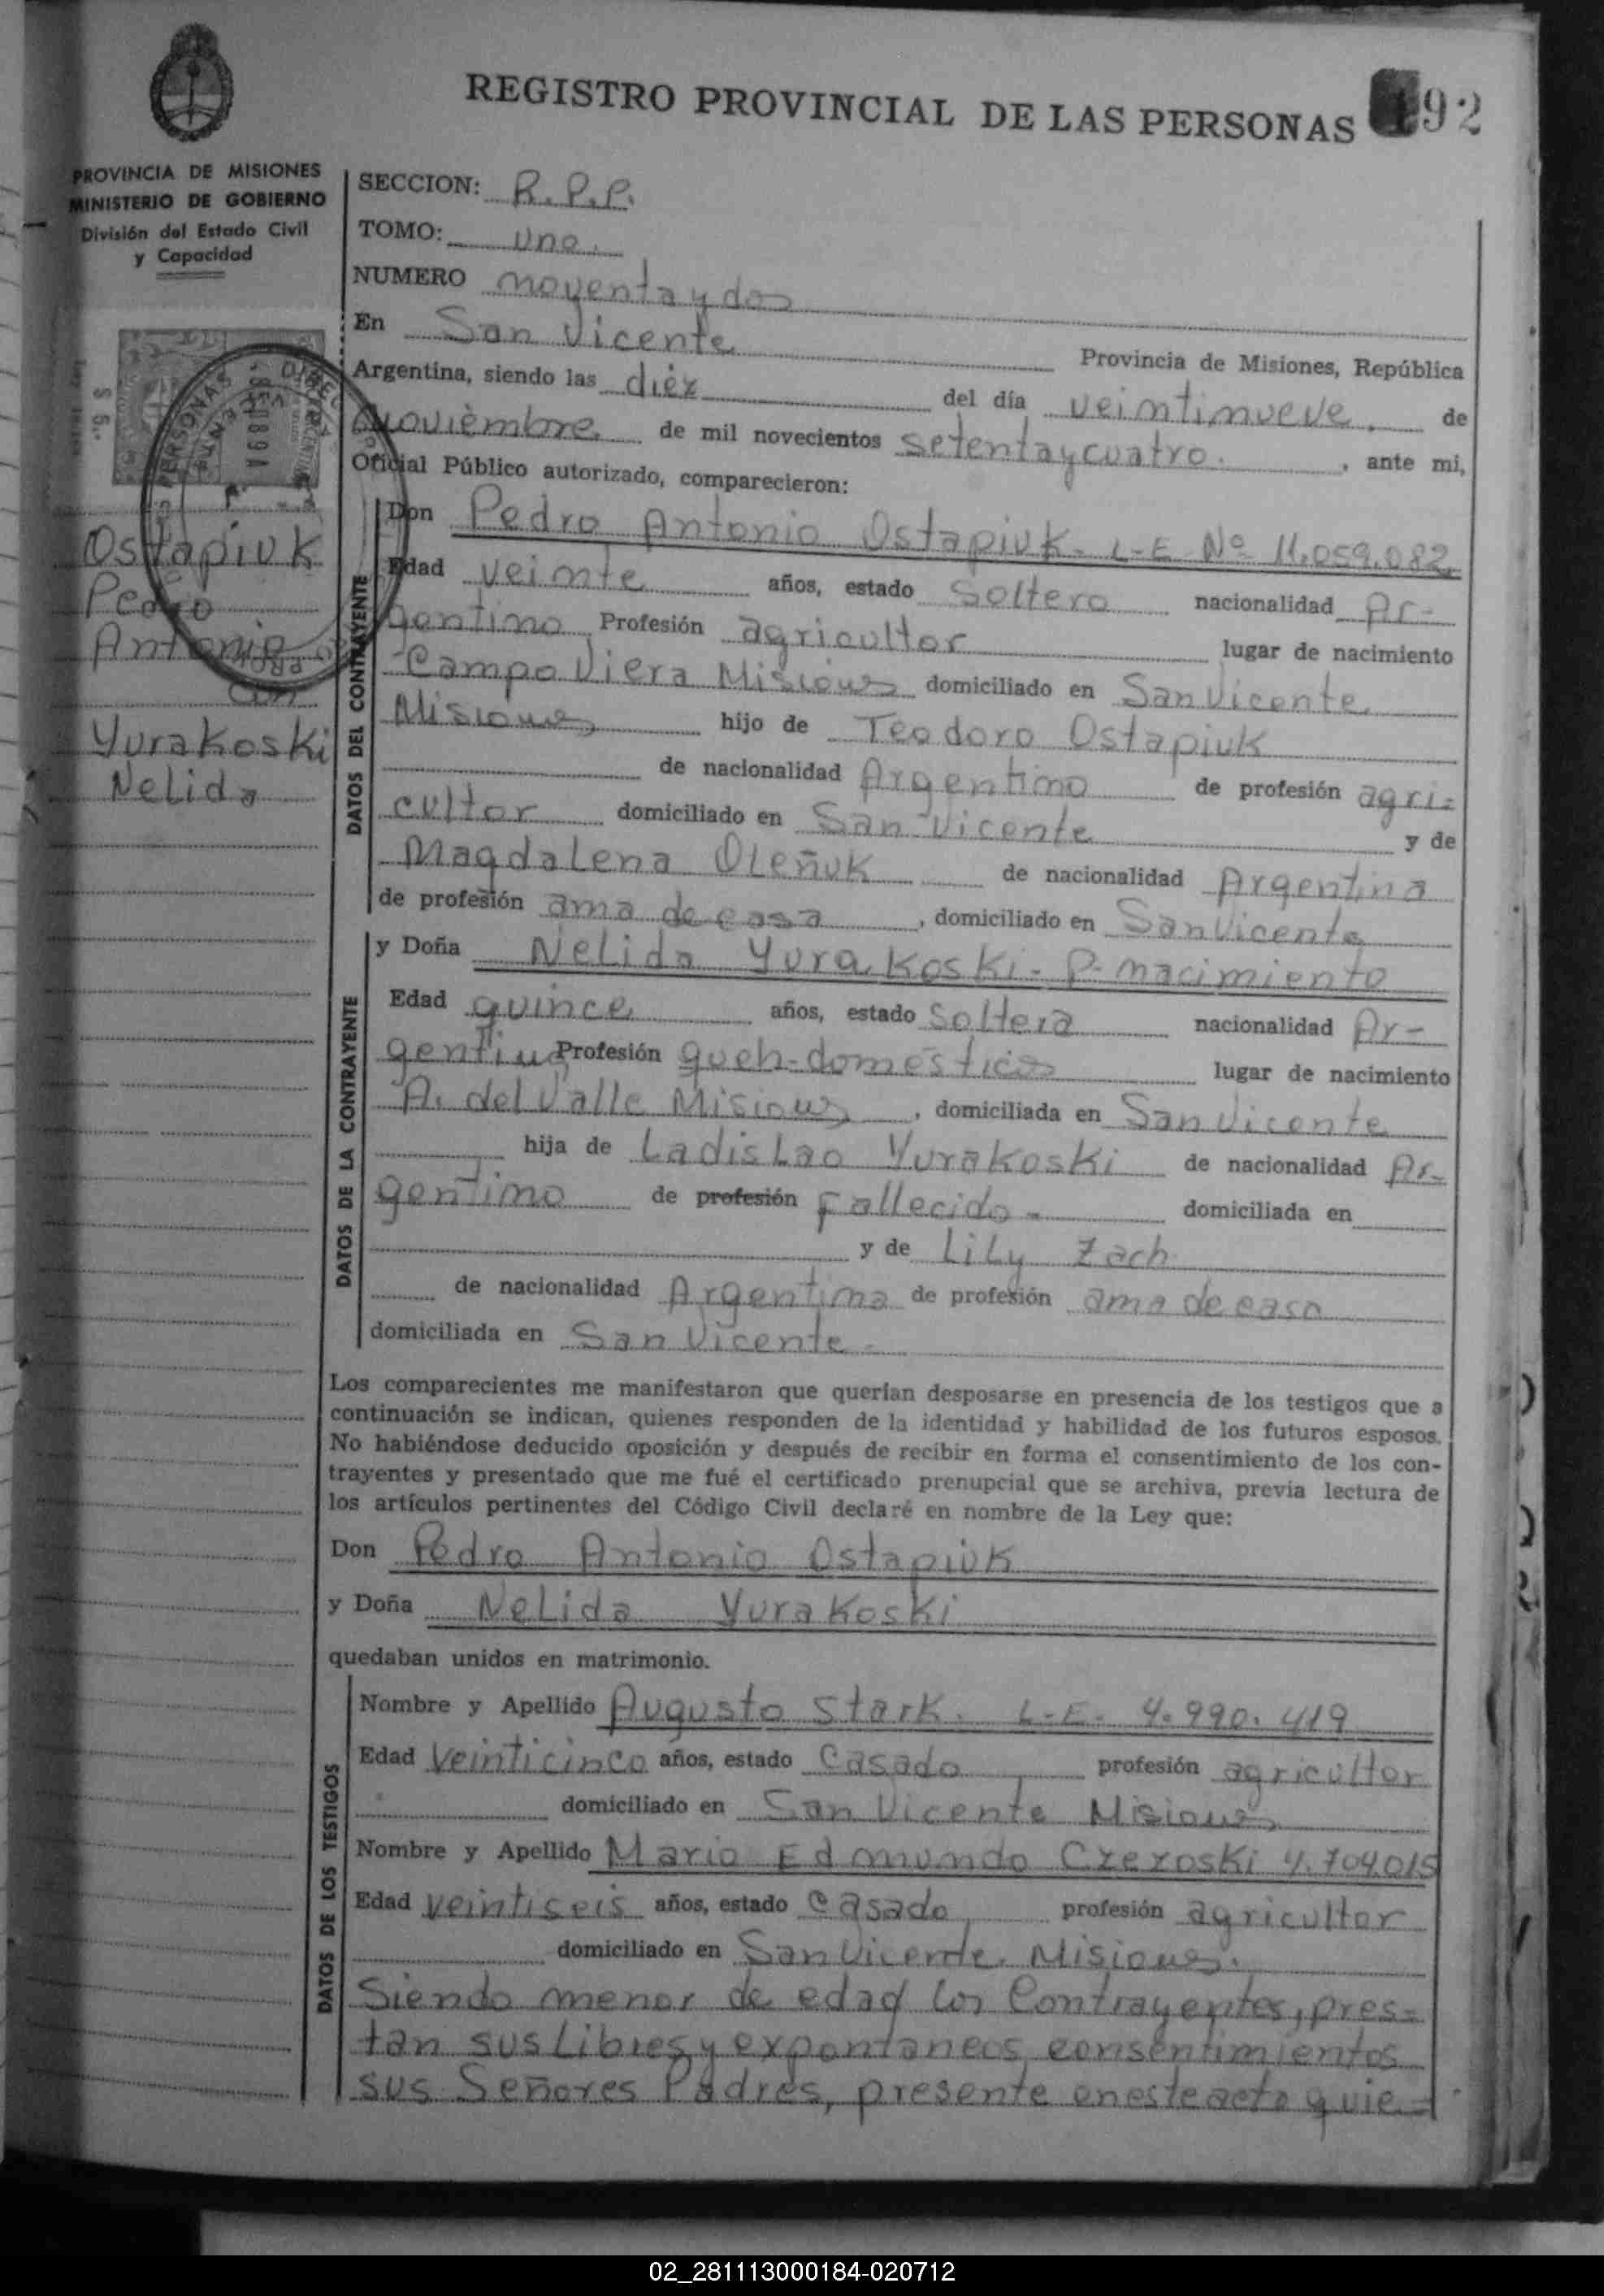 REGISTRO PROVINCIAL DE LAS PERSONAS 92
PROVINCIA DE MISIONES
MINISTERIO DE GOBIERNO
División del Estado Civil
y Capacidad
SECCION: R.P.P.
TOMO: uno.
NUMERO noventa y dos
En San Vicente Provincia de Misiones, República
Argentina, siendo las diéz del día veintinueve, de
noviémbre de mil novecientos setenta y cuatro. , ante mi,
Oficial Público autorizado, comparecieron:
Ostapiuk
Pedro
Antonio
con
Yurakoski
Nelida
DATOS DEL CONTRAYENTE
Don Pedro Antonio Ostapiuk- L-E Nº 11.059.082
Edad veinte años, estado Soltero nacionalidad Ar-
gentino Profesión agricultor lugar de nacimiento
Campo Viera Misiones domiciliado en San Vicente
Misiones hijo de Teodoro Ostapiuk
de nacionalidad Argentino de profesión agri-
cultor domiciliado en San Vicente y de
Magdalena Oleñuk de nacionalidad Argentina
de profesión ama de casa , domiciliado en San Vicente
DATOS DE LA CONTRAYENTE
y Doña Nelida Yurakoski- P- nacimiento
Edad quince años, estado Soltera nacionalidad Ar-
gentina Profesión queh-domésticos lugar de nacimiento
A. del Valle Misiones , domiciliada en San Vicente
hija de Ladislao Yurakoski de nacionalidad Ar-
gentino de profesión Fallecido- domiciliada en
y de Lily Zach
de nacionalidad Argentina de profesión ama de casa
domiciliada en San Vicente-
Los comparecientes me manifestaron que querían desposarse en presencia de los testigos que a
continuación se indican, quienes responden de la identidad y habilidad de los futuros esposos.
No habiéndose deducido oposición y después de recibir en forma el consentimiento de los con-
trayentes y presentado que me fué el certificado prenupcial que se archiva, previa lectura de
los artículos pertinentes del Código Civil declaré en nombre de la Ley que:
Don Pedro Antonio Ostapiuk
y Doña Nelida Yurakoski
quedaban unidos en matrimonio.
DATOS DE LOS TESTIGOS
Nombre y Apellido Augusto Stark. L-E- 4.990.419
Edad veinticinco años, estado Casado profesión agricultor
domiciliado en San Vicente Misiones
Nombre y Apellido Mario Edmundo Czeroski 4.704.015
Edad veintiseis años, estado Casado profesión agricultor
domiciliado en San Vicente Misiones.
Siendo menor de edad los Contrayentes, pres-
tan sus libres y expontaneos consentimientos
sus Señores Padres, presente en este acto quie-
02_281113000184-020712